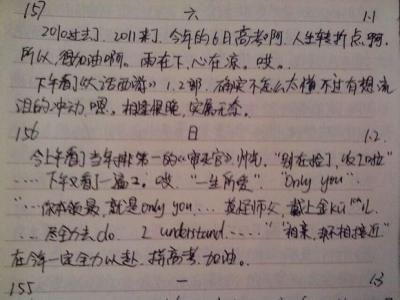 157 六 1.1
2010过去了,2011来了,今年的6月高考啊,人生转折点啊,
所以,得加油啊。雨在下,心在凉。哎。
下午看了《大话西游》1.2部,确实不怎么太懂不过有想流
泪的冲动,嗯。相逢恨晚,实属无奈。
156 日 1.2
今上午看了当年排第一的《审死官》,"别在捡了,
……下午又看了一遍2。哎 "一生所爱" "Only you"
"…你本领最 就是only you…. 戴上金kū 儿
…尽全力去do. I understand……" "相亲 不相接近"
在今年一定全力以赴,拼高考,加油。
155 一 1.3